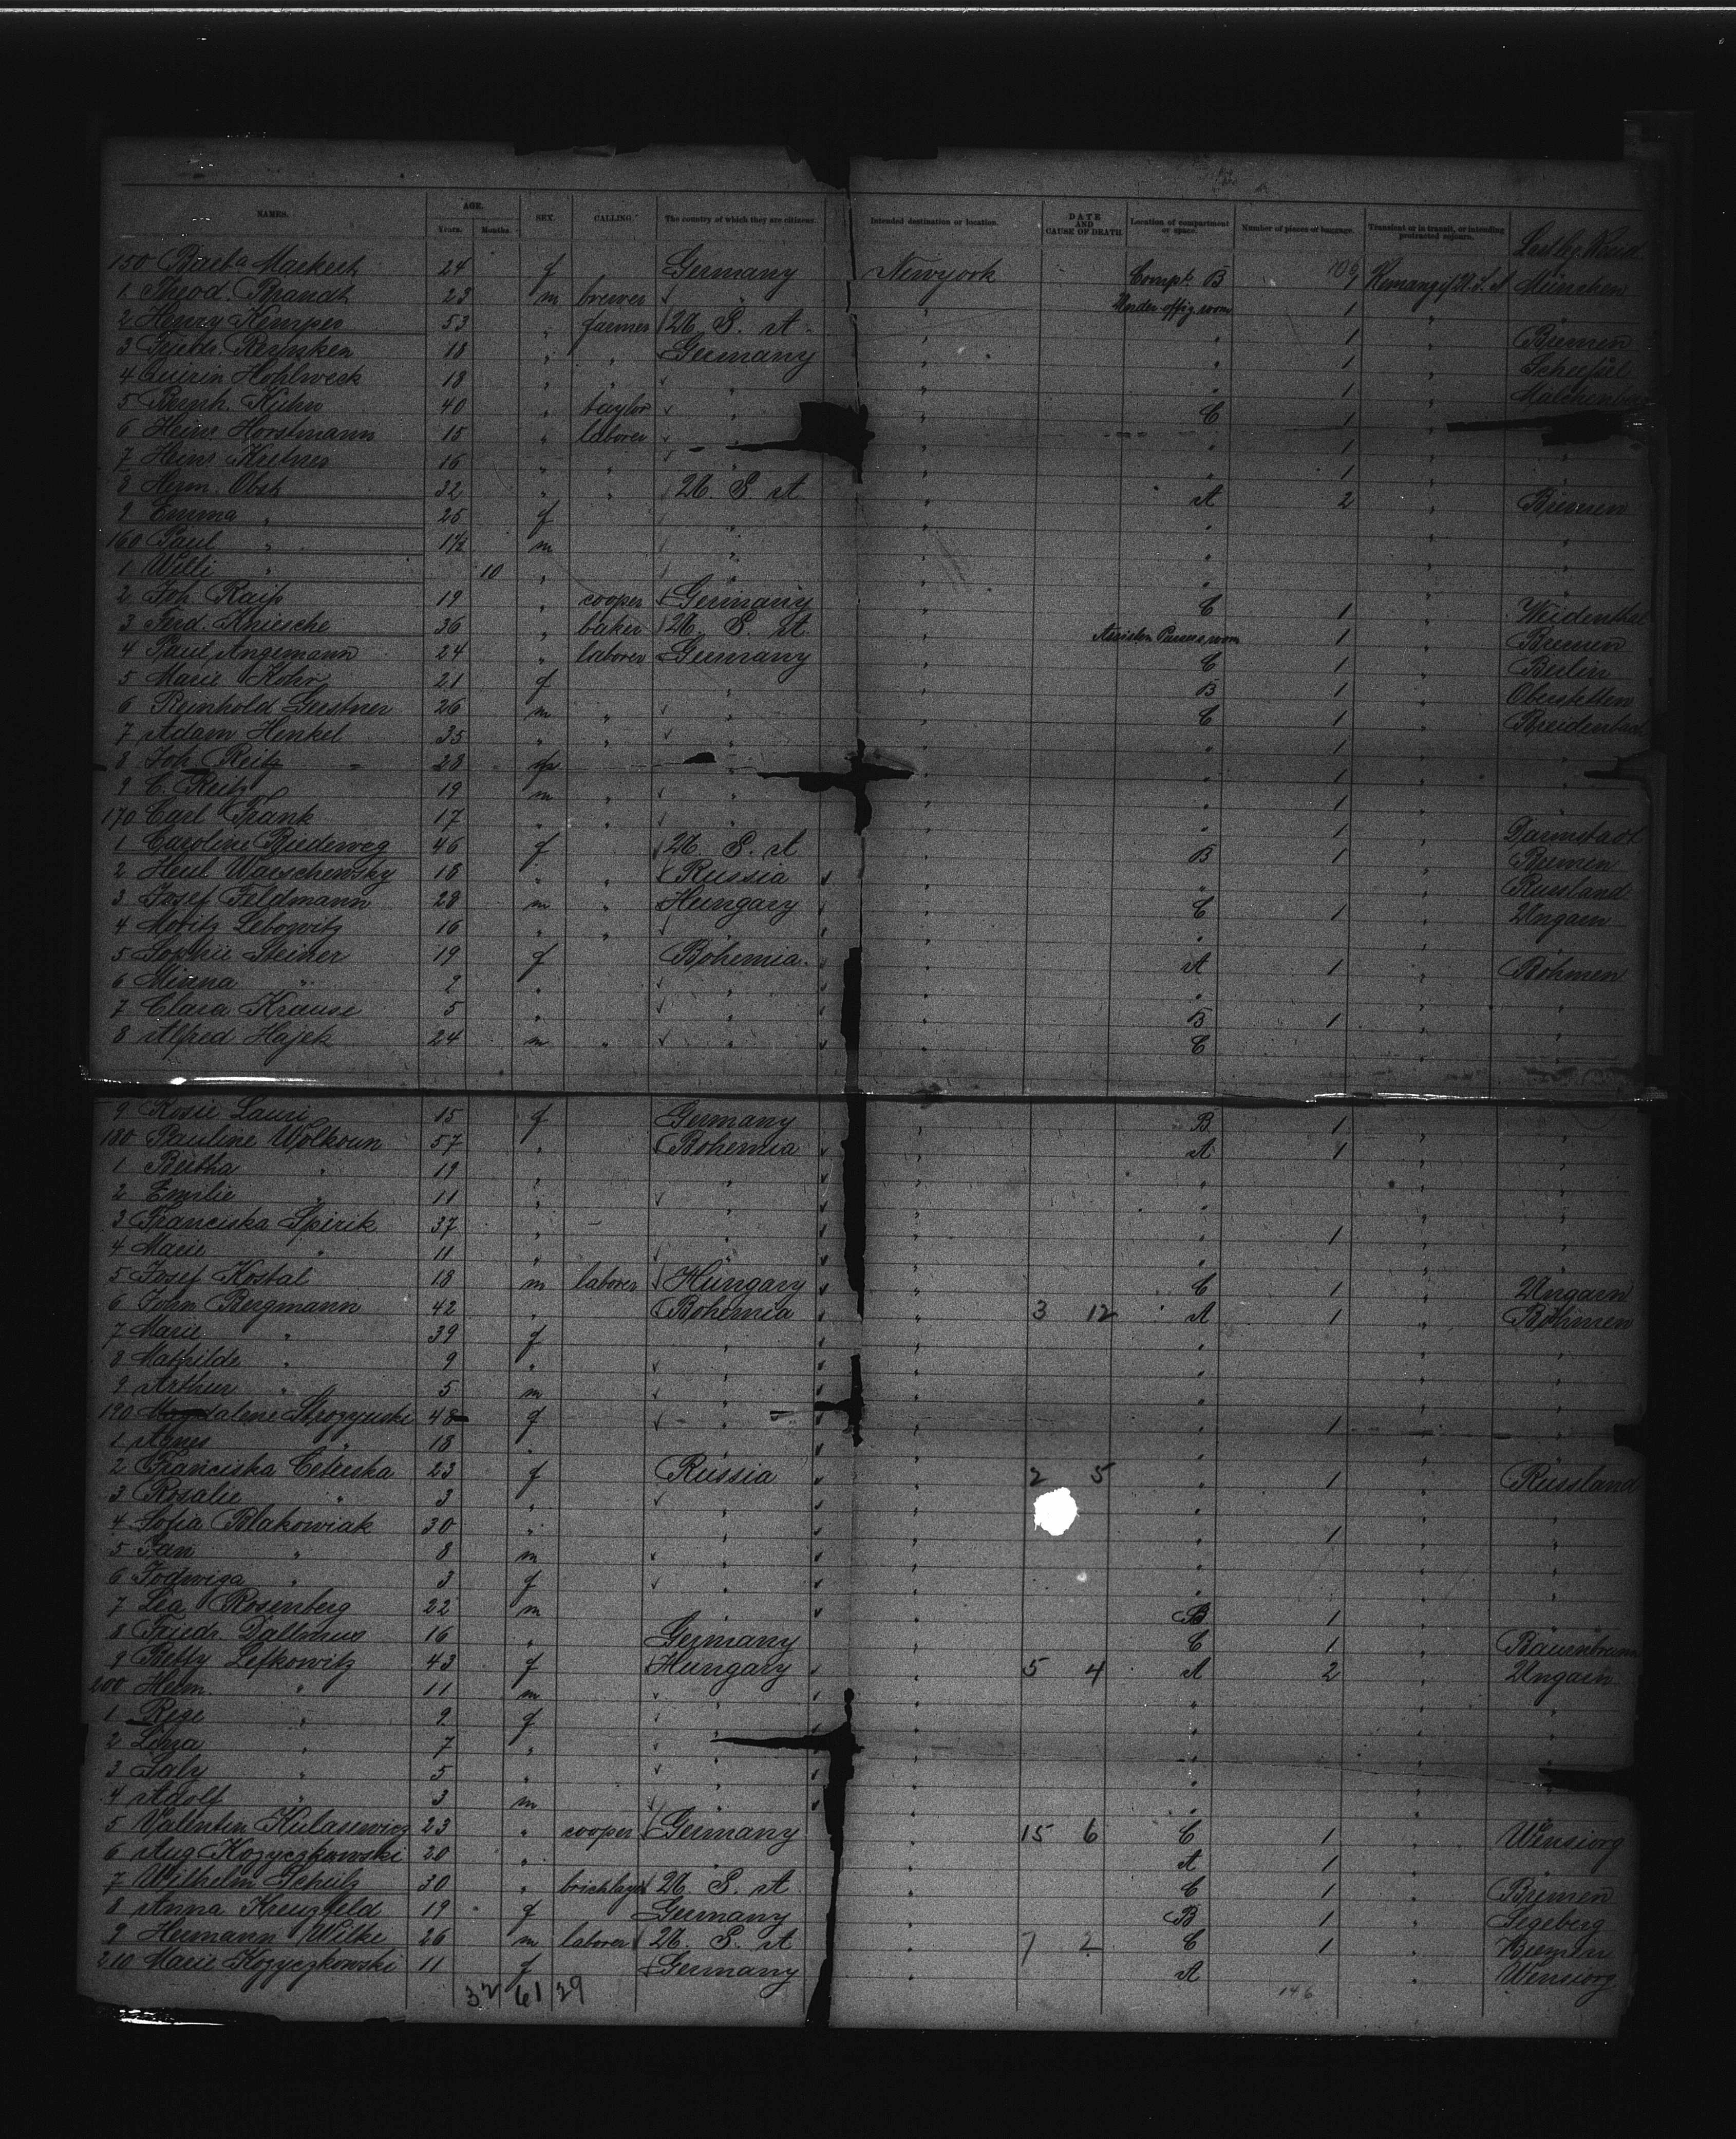 NAMES. AGE. Years. Months. SEX. CALLING. The country of which they are citizens. Intended destination or location. DATE AND CAUSE OF DEATH Location of compartment or space. Number of pieces of baggage. Transient or in transit, or intending protracted sojourn.
150 Barba Markert 24 f Germany Newyork Compt. B of U.S.A München
1 Theod. Brandt 23 m brewer " " 1 "
2 Henry Kemper 53 " farmer U. S. A. " " 1 " Bremen
3 Friedr. 18 " " Germany " " 1 "
4 Quirin Hohlweck 18 " " " " " 1 "
5 Bernh. Kühn 40 " taylor " " C 1
6 Heinr Horstmann 15 " laborer " " 1 "
7 Heinr 16 " " " " " 1 "
8 Herm. Obst 32 " " U. S. A " A 2 " Bremen
9 Emma " 25 f " " " " "
160 Paul " 1½ m " " " " "
1 Willi " 10 " " " " "
2 Joh. Raiss 19 " cooper Germany " C 1 " Weidenthal
3 Ferd. Kniesche 36 " baker U. S. A " 1 " Bremen
4 Paul Angemann 24 " laborer Germany " C 1 " Berlin
5 Marie Kohr 21 f " " B 1 " Oberstetten
6 Reinhold Gerstner 26 m " " " C 1 "
7 Adam Henkel 35 " " " " " 1 " "
8 Joh. Reitz 28 " " 1 " "
9 C. Reitz 19 m " " " " 1 " "
170 Carl Frank 17 " " " " " 1 " Darmstadt
1 Caroline Biedeweg 46 f U. S. A " B 1 " Bremen
2 Warschewsky 18 " " Russia " " " Russland
3 Josef Feldmann 28 m " Hungary " C 1 " Ungarn
4 Moritz Lebowitz 16 " " " " " " "
5 Sophie Steiner 19 f Bohemia. " A 1 " Böhmen
6 Minna " 2 " " " " " "
7 Clara Krause 5 " " " B 1 " "
8 Alfred Hajek 24 m " " " C " "
9 Rosie Lauri 15 f Germany " B 1 " "
180 Pauline Wolkoun 57 " Bohemia " A 1 " "
1 Bertha " 19 " " " " " "
2 Emilie " 11 " " " " " "
3 Franciska Spirik 37 " " " " 1 " "
4 Marie " 11 " " " " " "
5 Josef Kostal 18 m laborer Hungary " C 1 " Ungarn
6 John Bergmann 42 " Bohemia " 3 12 A 1 " Böhmen
7 Marie " 39 f " " " " "
8 Mathilde " 9 " " " " " "
9 Arthur " 5 m " " " " "
190 48 f " " " 1 " "
1 Agnes " 18 " " " " " "
2 Franciska 23 f Russia " 2 5 " 1 " Russland
3 Rosalie " 3 " " " " " "
4 Sofia Blakowiak 30 " " " " 1 " "
5 Jan " 8 m " " " " "
6 Jodwiga " 3 f " " " " "
7 Lea Rosenberg 22 m " " B 1 " "
8 Friedr. Dallmus 16 " Germany " C 1 "
9 Betty Lefkowitz 43 f Hungary " 5 4 A 2 " Ungarn
200 Herm. " 11 m " " " " "
1 Rege " 9 f " " " " "
2 Lina " 7 " " " " " "
3 Saly " 5 " " " " " "
4 Adolf " 3 m " " " " "
5 Valentin Kulasewicz 23 " cooper Germany " 15 6 C 1 " Wensiorg
6 Aug Kozyczkowski 20 " " " A 1 " "
7 Wilhelm Schulz 30 " bricklayer U. S. A " C 1 " Bremen
8 Anna Kreuzfeld 19 f Germany " B 1 " Segeberg
9 Hermann Wilke 26 m laborer U. S. A " 7 2 C 1 " Bremen
210 Marie Kozyczkowski 11 f Germany " A " Wensiorg
32 61 29 146